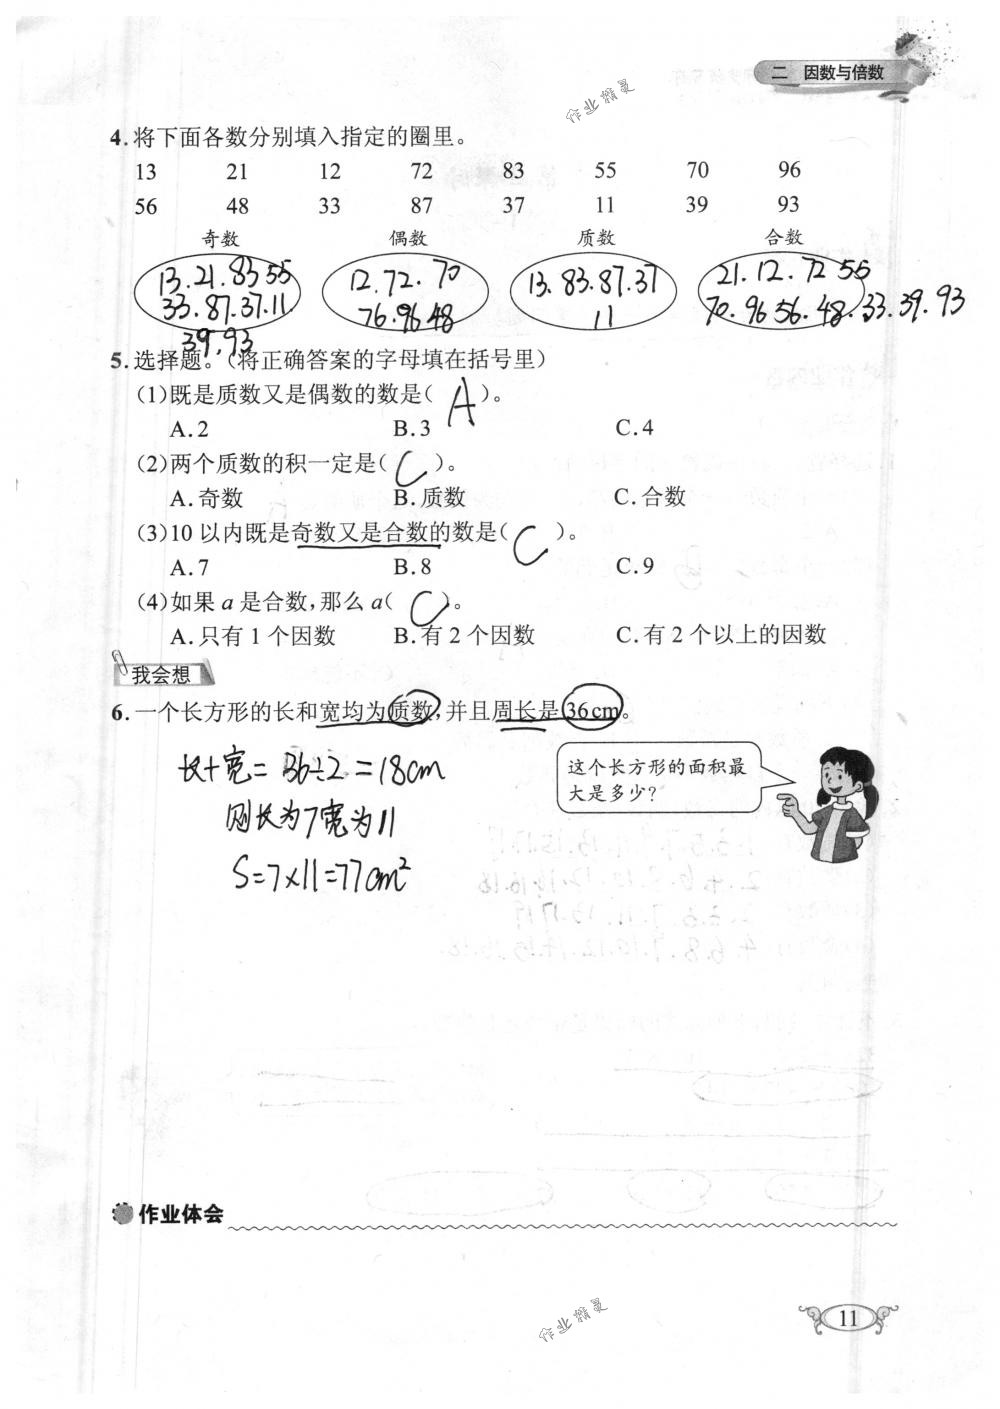 二 因数与倍数
作业精灵
4.将下面各数分别填入指定的圈里。
13 21 12 72 83 55 70 96
56 48 33 87 37 11 39 93
奇数 偶数 质数 合数
13.21.83 55
33.87.37.11.
39.93
12.72.70
76.96 48
13.83.87.37
11
21.12.72 55
70.96 56.48.33.39.93
5.选择题。(将正确答案的字母填在括号里)
(1)既是质数又是偶数的数是( A )。
A.2 B.3 C.4
(2)两个质数的积一定是( C )。
A.奇数 B.质数 C.合数
(3)10以内既是奇数又是合数的数是( C )。
A.7 B.8 C.9
(4)如果a是合数,那么a( C )。
A.只有1个因数 B.有2个因数 C.有2个以上的因数
我会想
6.一个长方形的长和宽均为质数,并且周长是36cm。
这个长方形的面积最
大是多少?
长+宽=36÷2=18cm
则长为7宽为11
S=7×11=77cm²
作业体会
作业精灵
11